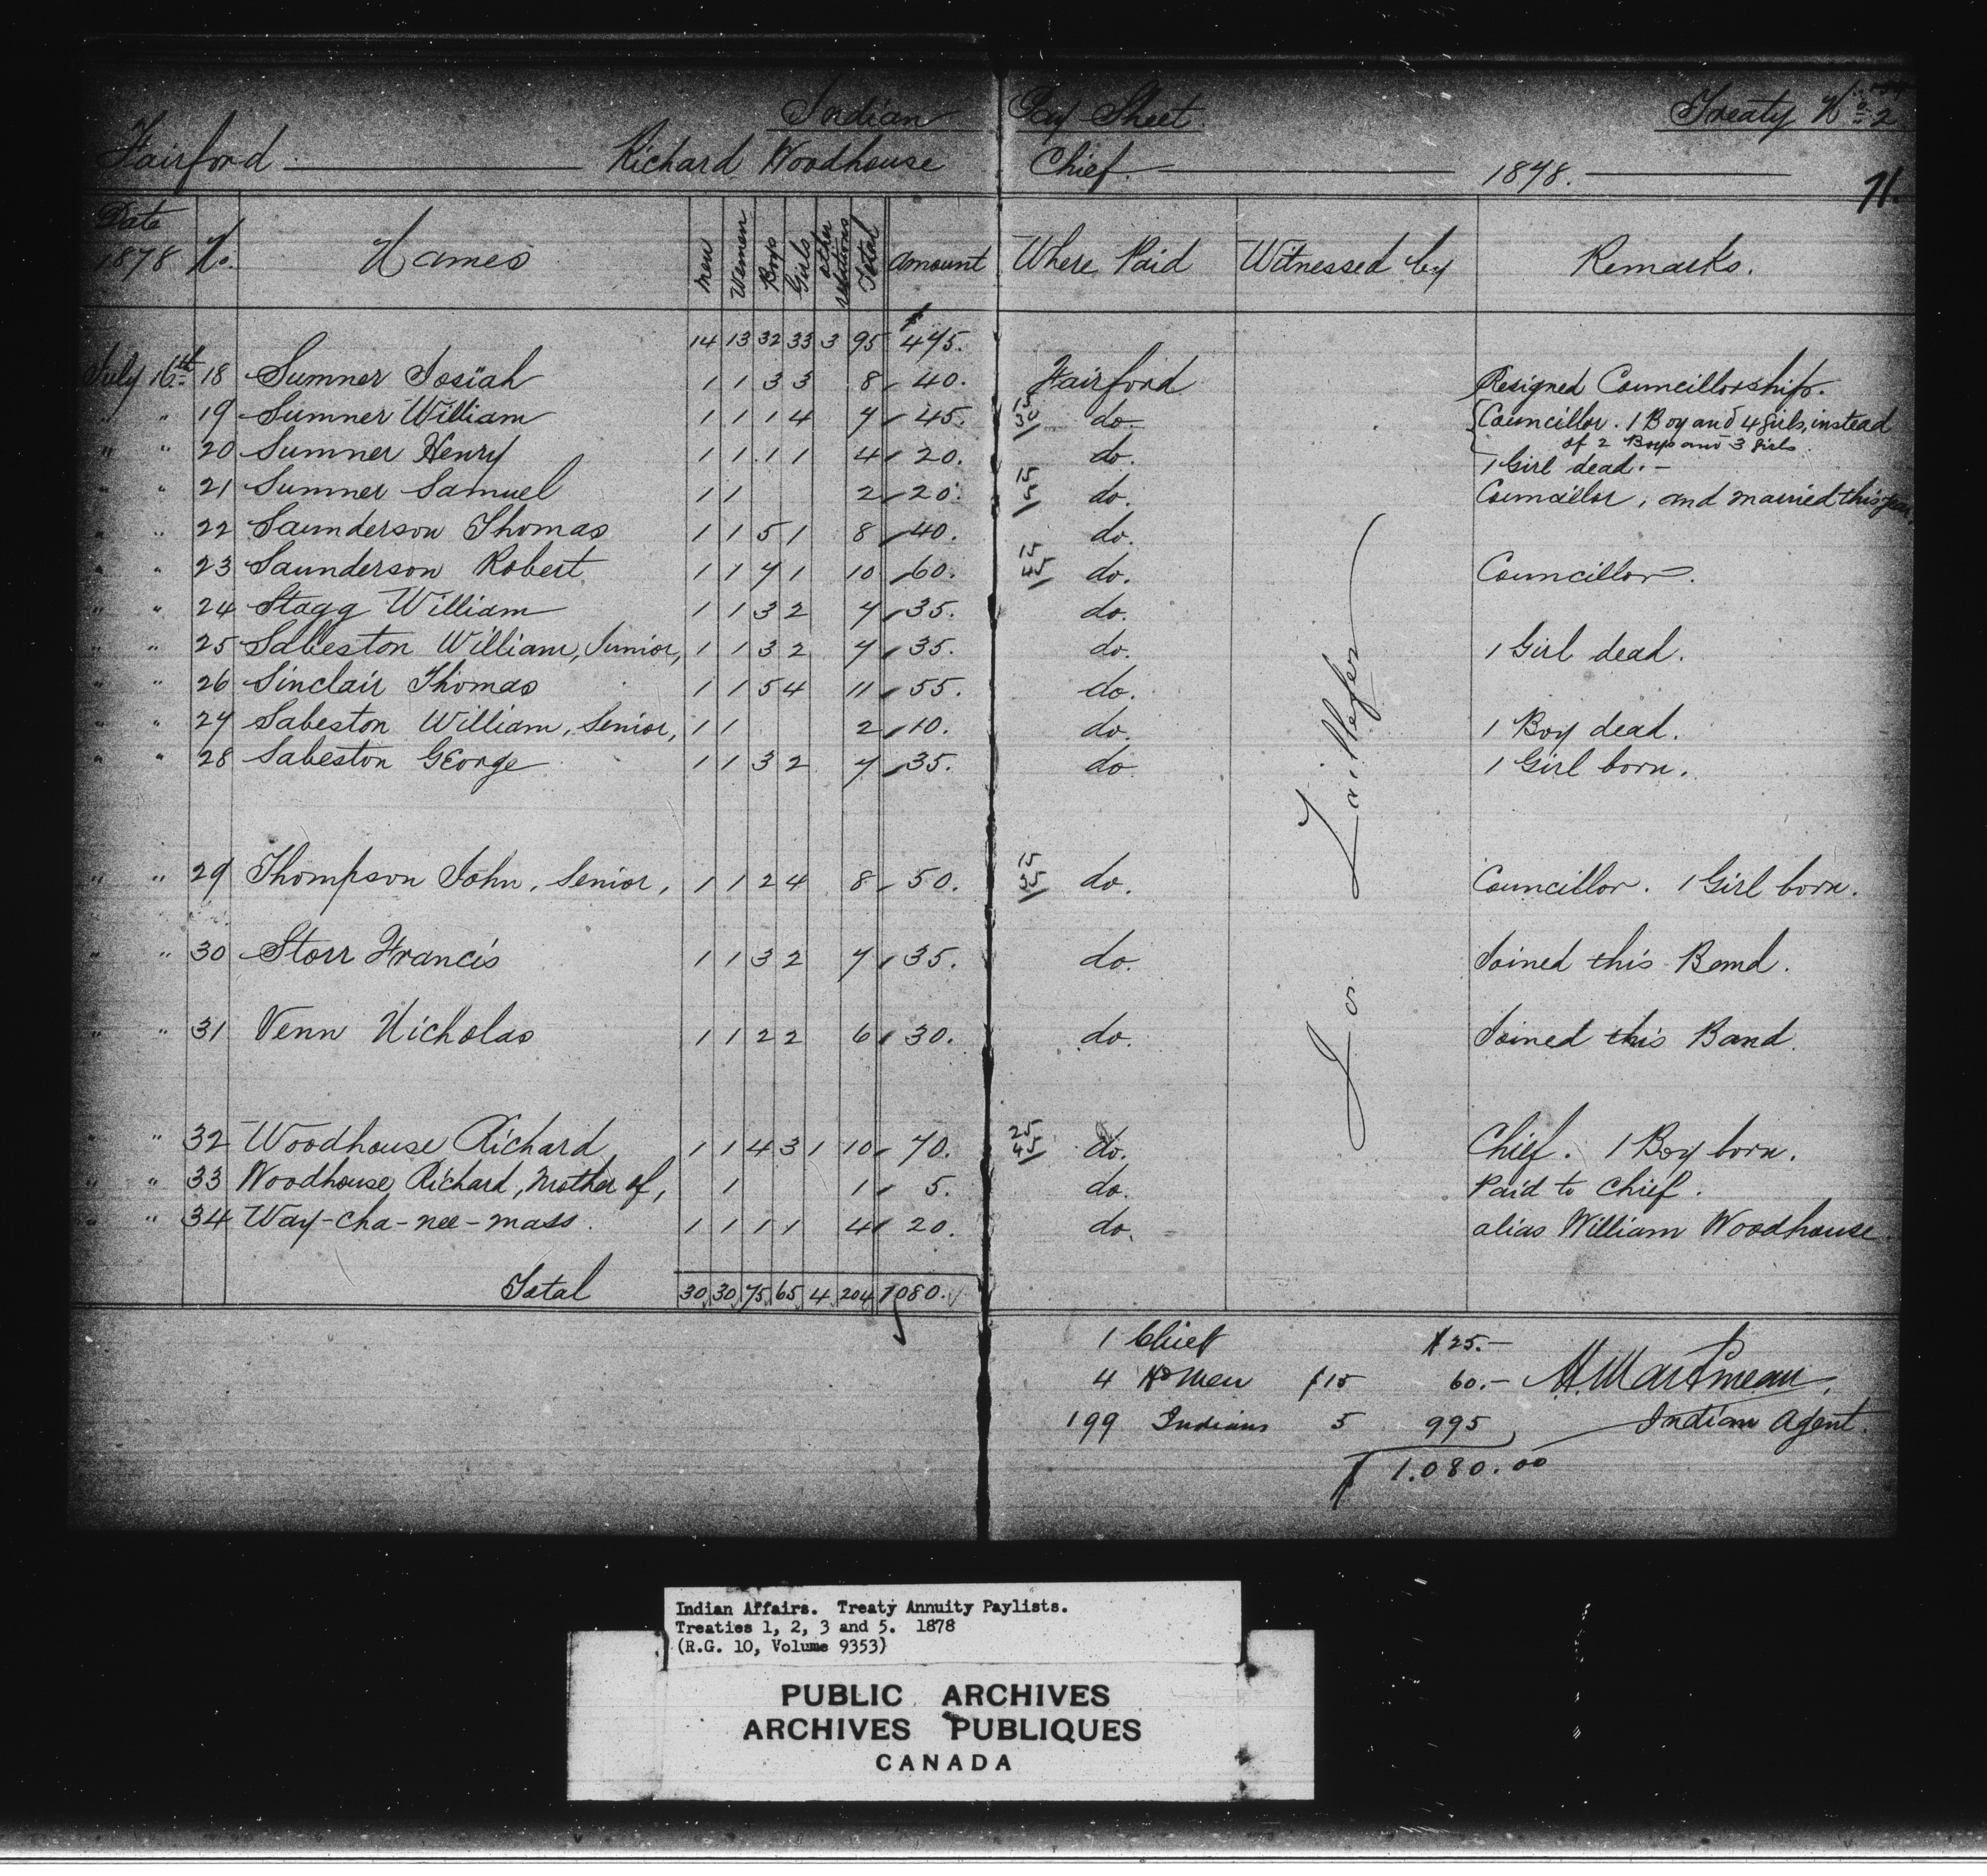 Indian Pay Sheet. Treaty No. 2
Fairford Richard Woodhouse Chief. 1878.
71.
Date 1878 No. Names Men Women Boys Girls other relations Total Amount Where Paid Witnessed by Remarks.
14 13 32 33 3 95 $475.
July 16th 18 Sumner Josiah 1 1 3 3 8 40. Fairford Resigned Councillorship.
" " 19 Sumner William 1 1 1 4 7 45. 15 30 do. Councillor. 1 Boy and 4 girls, instead
of 2 Boys and 3 girls
" " 20 Sumner Henry 1 1 1 1 4 20. do. 1 Girl dead. -
" " 21 Sumner Samuel 1 1 2 20. 15 5 do. Councillor, and married this year.
" " 22 Saunderson Thomas 1 1 5 1 8 40. do.
" " 23 Saunderson Robert 1 1 7 1 10 60. 15 45 do. Councillor.
" " 24 Stagg William 1 1 3 2 7 35. do.
" " 25 Sabeston William, Junior, 1 1 3 2 7 35. do. 1 Girl dead.
" " 26 Sinclair Thomas 1 1 5 4 11 55. do.
" " 27 Sabeston William, Senior, 1 1 2 10. do. 1 Boy dead.
" " 28 Sabeston George 1 1 3 2 7 35. do 1 Girl born.
" " 29 Thompson John, Senior, 1 1 2 4 8 50. 15 35 do. Councillor. 1 Girl born.
" " 30 Storr Francis 1 1 3 2 7 35. do. Joined this Band.
" " 31 Venn Nicholas 1 1 2 2 6 30. do. Joined this Band.
" " 32 Woodhouse Richard 1 1 4 3 1 10 70. 25 45 do. Chief. 1 Boy born.
" " 33 Woodhouse Richard, Mother of, 1 1 5. do. Paid to Chief.
" " 34 Way-cha-nee-mass. 1 1 1 1 4 20. do. alias William Woodhouse.
Total 30 30 75 65 4 204 1080.
1 Chief $25.-
4 Hd Men $15 60.- H. Martineau,
199 Indians 5 995 Indian Agent.
$1.080.00
Indian Affairs. Treaty Annuity Paylists.
Treaties 1, 2, 3 and 5. 1878
(R.G. 10, Volume 9353)
PUBLIC ARCHIVES
ARCHIVES PUBLIQUES
CANADA